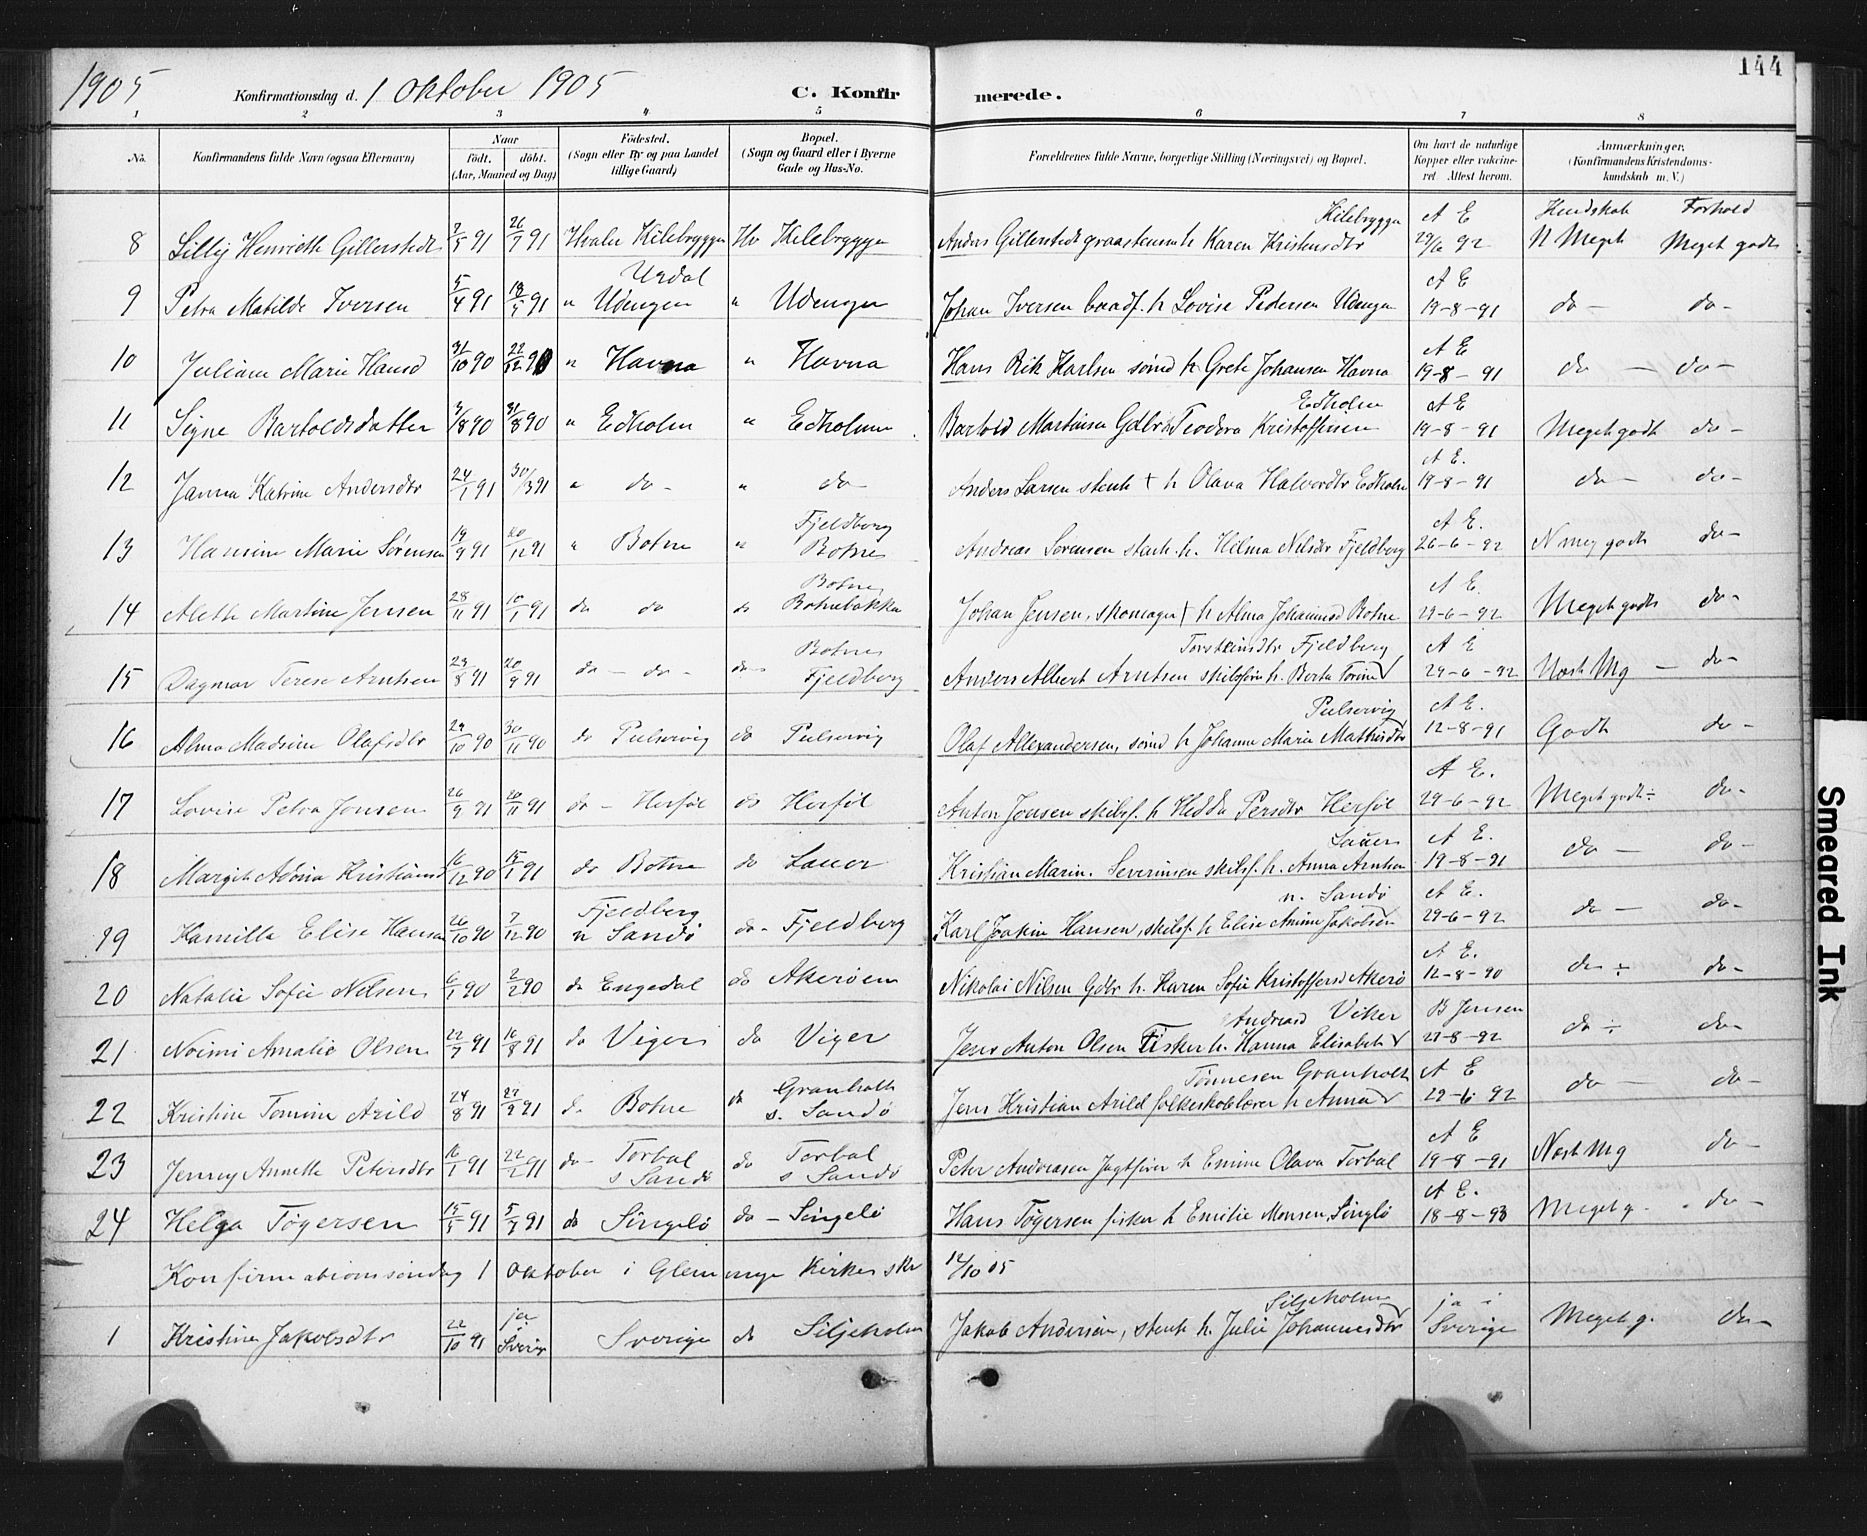 1905 Konfirmationsdag d. 1 Oktober 1905 C. Konfirmerede. 144
1 2 3 4 5 6 7 8
No. Konfirmandens fulde Navn (ogsaa Efternavn) Naar født. døbt. (Aar, Maaned og Dag) Fødested. (Sogn eller By og paa Landet tillige Gaard) Bopæl. (Sogn og Gaard eller i Byerne Gade og Hus-No. Forældrenes fulde Navne, borgerlige Stilling (Næringsvei) og Bopæl. Om havt de naturlige Kopper eller vakcineret. Attest herom. Anmerkninger. (Konfirmandens Kristendomskundskab m. V.)
Kilebryggen A E Kundskab Forhold
8 Lilly Henriette Gillerstedt 7/5 91 26/7 91 Hvaler Kilebryggen Hv Kilebryggen Anders Gillerstedt graastensm h Karen Kristensdtr 29/6 92 N Meget Meget godt
Urdal A E
9 Petra Matilde Iversen 5/4 91 18/5 91 " Udengen " Udengen Johan Iversen baadf. h Lovise Pedersen Udengen 19-8-91 do - do -
A E
10 Juliane Marie Hansd 31/10 90 22/12 90 " Havna " Havna Hans Rik Karlsen sømd h Grete Johansen Havna 19-8-91 do - do -
Edholm A E
11 Signe Bartoldsdatter 3/8 90 31/8 90 " Edholm " Edholmen Bartold Martinsen Gdbr h Teodora Kristoffersen 19-8-91 Meget godt do -
A E.
12 Janna Katrine Andersdtr 24/1 91 30/3 91 " do - " do - Anders Larsen stenh + h Olava Halvordtr Edholm 19-8-91 do - do -
Fjeldberg A E.
13 Hansine Marie Sørensen 19/9 91 20/12 91 " Botne " Botne Andreas Sørensen stenh. h. Hilma Nilsdtr Fjeldberg 26-6-92 N meg godt do -
Botne A E.
14 Alette Martine Jensen 28/11 91 10/1 91 do do do Botnebakken Johan Jensen, skomager + h Alma Johannesd Botne 29-6-92 Meget godt do -
Botne Torsteinsdtr Fjeldberg A E
15 Dagmar Terese Arntsen 23/8 91 20/9 91 do - do - do - Fjeldberg Anders Albert Arntsen skibsfører h. Berta Torine 29-6-92 Næst Mg - do -
Pulservig A E.
16 Alma Madsine Olafsdtr 29/10 90 30/11 90 do Pulservig do Pulservig Olaf Allexandersen, sømd h Johanne Marie Mathisdtr 12-8-91 Godt do -
A E.
17 Lovise Petra Jonsen 26/9 91 20/11 91 do - Herføl do Herføl Anton Jonsen skibsf. h Hedda Persdtr Herføl 29-6-92 Meget godt ÷ do -
Lauer A E.
18 Margit Adéna Kristians 16/12 90 15/1 91 do Botne do Lauer Kristian Marin. Severinsen skibsf. h. Anna Arntsen 19-8-91 do - do -
Fjeldberg n. Sandø A E.
19 Kamilla Elise Hansen 26/10 90 7/12 90 n Sandø do - Fjeldberg Karl Joakim Hansen, skibsf h Elise Amine Jakobsen 29-6-92 do - do -
A E.
20 Natalie Sofie Nilsen 6/1 90 2/2 90 do Engedal do Akerøen Nikolai Nilsen Gdbr h. Karen Sofie Kristoffersd Akerø 12-8-90 do ÷ do -
Andreasd Viker B Jensen
21 Noimi Amalie Olsen 22/7 91 16/8 91 do Viger do Viger Jens Anton Olsen Fisker h. Hanna Elisabet 27-8-92 do ÷ do -
Granholt Tønnesen Granholt A E
22 Kristine Tomine Arild 24/8 91 27/9 91 do Botne do s. Sandø Jens Kristian Arild folkeskolelærer h Anna 29-6-92 do - do -
A E
23 Jenny Annette Petersdtr 16/1 91 22/2 91 do - Torbal s Sandø do Torbal s Sandø Peter Andreasen Jagtfører h Emine Olava Torbal 19-8-91 Næst Mg do -
A E.
24 Helga Tøgersen 15/5 91 5/7 91 do Singelø do - Singelø Hans Tøgersen fisker h Emilie Monsen, Singlø 18-8-93 Meget g. - do -
Konfirmationssøndag 1 Oktober i Glemminge Kirke skr 12/10 05
ja Siljeholmen ja i
1 Kristine Jakobsdtr 22/10 91 i Sverig Sverige do Siljeholm Jakob Andersen, stenh h. Julie Johannesdtr Sverige Meget g. do -
Smeared Ink